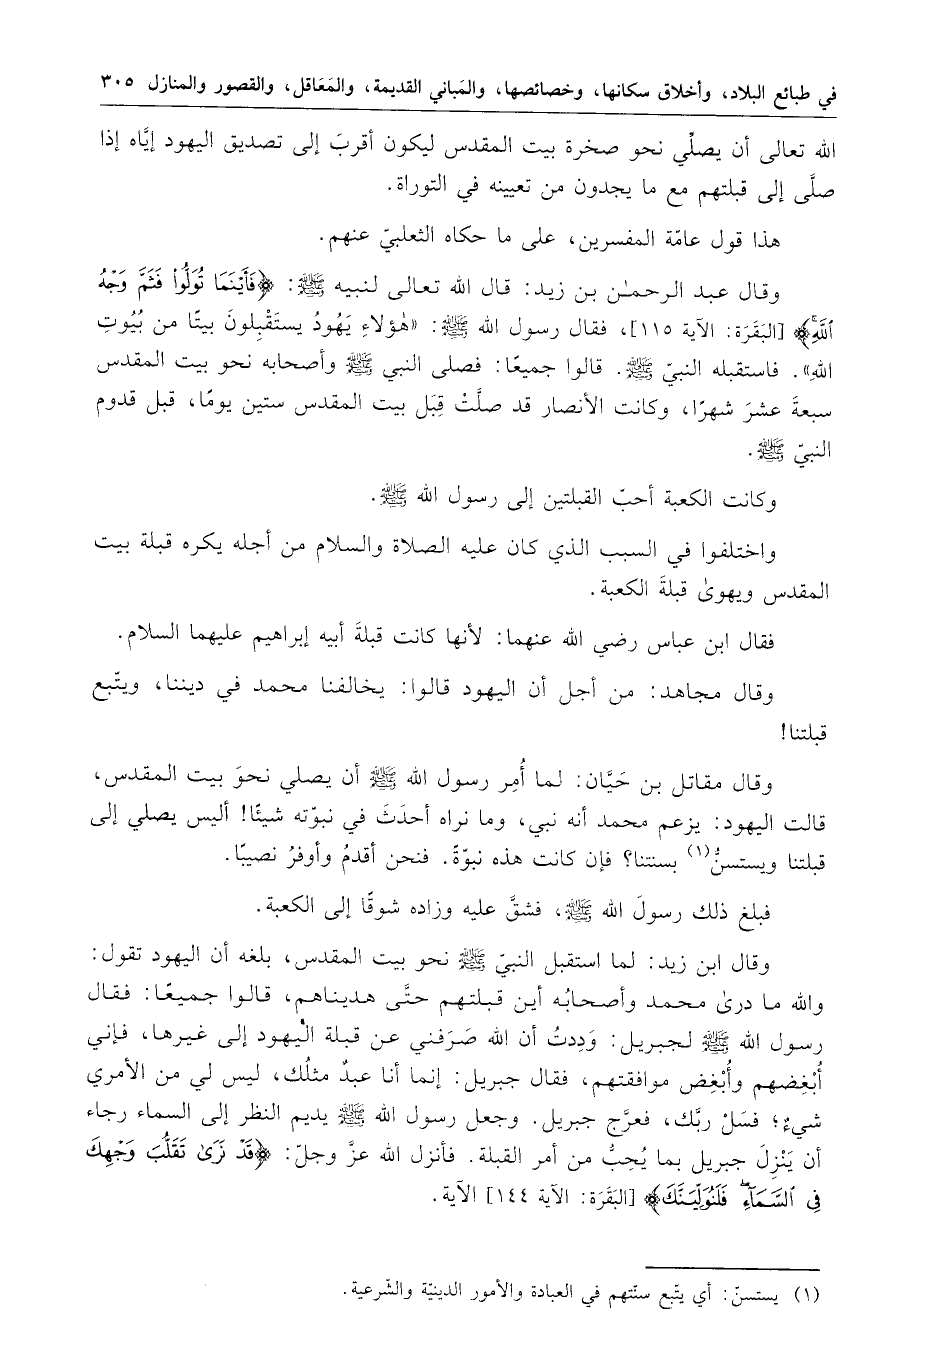 في طبائع البلاد، وأخلاق سكانها، وخصائصها، والمَباني القديمة، والمَعَاقل، والقصور والمنازل ٣٠٥
الله تعالى أن يصلِّي نحو صخرة بيت المقدس ليكون أقربَ إلى تصديق اليهود إيَّاه إذا
صلَّى إلى قبلتهم مع ما يجدون من تعيينه في التوراة.
هذا قول عامّة المفسرين، على ما حكاه الثعلبيّ عنهم.
وقال عبد الرحمـٰن بن زيد: قال الله تعالى لنبيه ﷺ: ﴿فَأَيْنَمَا تُوَلُّوا۟ فَثَمَّ وَجْهُ
ٱللَّهِۚ﴾ [البَقَرَة: الآية ١١٥]، فقال رسول الله ﷺ: «هٰؤلاءِ يَهُودُ يستَقْبِلونَ بيتًا من بُيُوتِ
اللهِ». فاستقبله النبيّ ﷺ. قالوا جميعًا: فصلى النبي ﷺ وأصحابه نحو بيت المقدس
سبعةَ عشرَ شهرًا، وكانت الأنصار قد صلَّتْ قِبَل بيت المقدس ستين يومًا، قبل قدوم
النبيّ ﷺ.
وكانت الكعبة أحبّ القبلتين إلى رسول الله ﷺ.
واختلفوا في السبب الذي كان عليه الصلاة والسلام من أجله يكره قبلة بيت
المقدس ويهوىٰ قبلةَ الكعبة.
فقال ابن عباس رضي الله عنهما: لأنها كانت قبلةَ أبيه إبراهيم عليهما السلام.
وقال مجاهد: من أجل أن اليهود قالوا: يخالفنا محمد في ديننا، ويتّبع
قبلتنا!
وقال مقاتل بن حَيَّان: لما أُمِر رسول الله ﷺ أن يصلي نحوَ بيت المقدس،
قالت اليهود: يزعم محمد أنه نبي، وما نراه أحدَثَ في نبوّته شيئًا! أليس يصلي إلى
قبلتنا ويستسنُّ(١) بسنتنا؟ فإن كانت هذه نبوّةً. فنحن أقدمُ وأوفرُ نصيبًا.
فبلغ ذلك رسولَ الله ﷺ، فشقَّ عليه وزاده شوقًا إلى الكعبة.
وقال ابن زيد: لما استقبل النبيّ ﷺ نحو بيت المقدس، بلغه أن اليهود تقول:
والله ما درىٰ محمد وأصحابُه أين قبلتهم حتَّى هديناهم، قالوا جميعًا: فقال
رسول الله ﷺ لجبريل: وَدِدتُ أن الله صَرَفني عن قبلة اليهود إلى غيرها، فإني
أُبْغِضهم وأُبْغِض موافقتهم، فقال جبريل: إنما أنا عبدٌ مثلُك، ليس لي من الأمري
شيءٌ؛ فسَلْ ربَّك، فعرَّج جبريل. وجعل رسول الله ﷺ يديم النظر إلى السماء رجاء
أن يَنْزِلَ جبريل بما يُحِبُّ من أمر القبلة. فأنزل الله عزَّ وجلّ: ﴿قَدْ نَرَىٰ تَقَلُّبَ وَجْهِكَ
فِي ٱلسَّمَآءِۖ فَلَنُوَلِّيَنَّكَ﴾ [البَقَرَة: الآية ١٤٤] الآية.
(١) يستسنّ: أي يتّبع سنّتهم في العبادة والأمور الدينيّة والشّرعية.